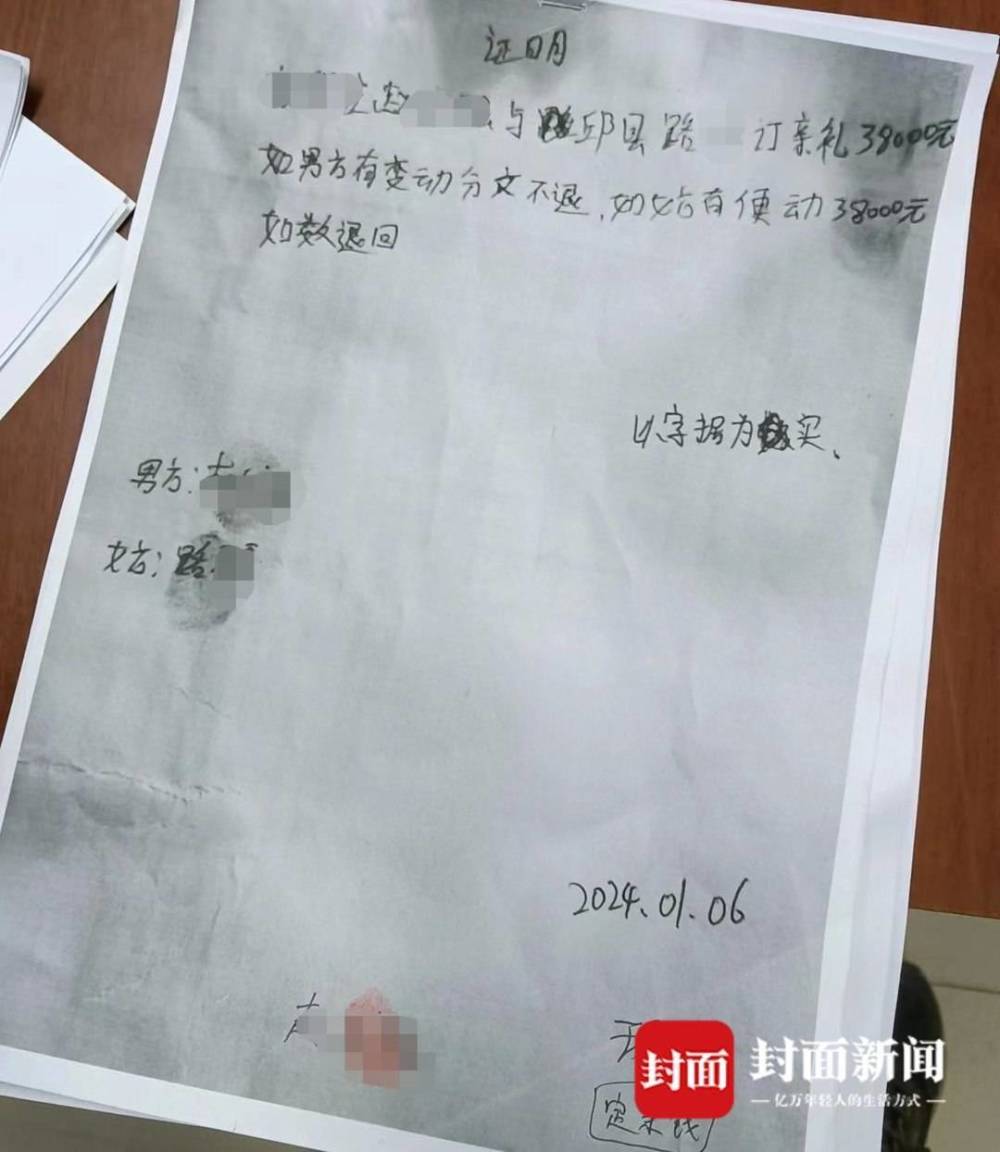 证明
与邱县路 订亲礼38000元
如男方有变动分文不退、如女方有便动38000元
如数退回
以字据为实、
男方:
女方:路
2024.01.06
封面
封面新闻
亿万年轻人的生活方式